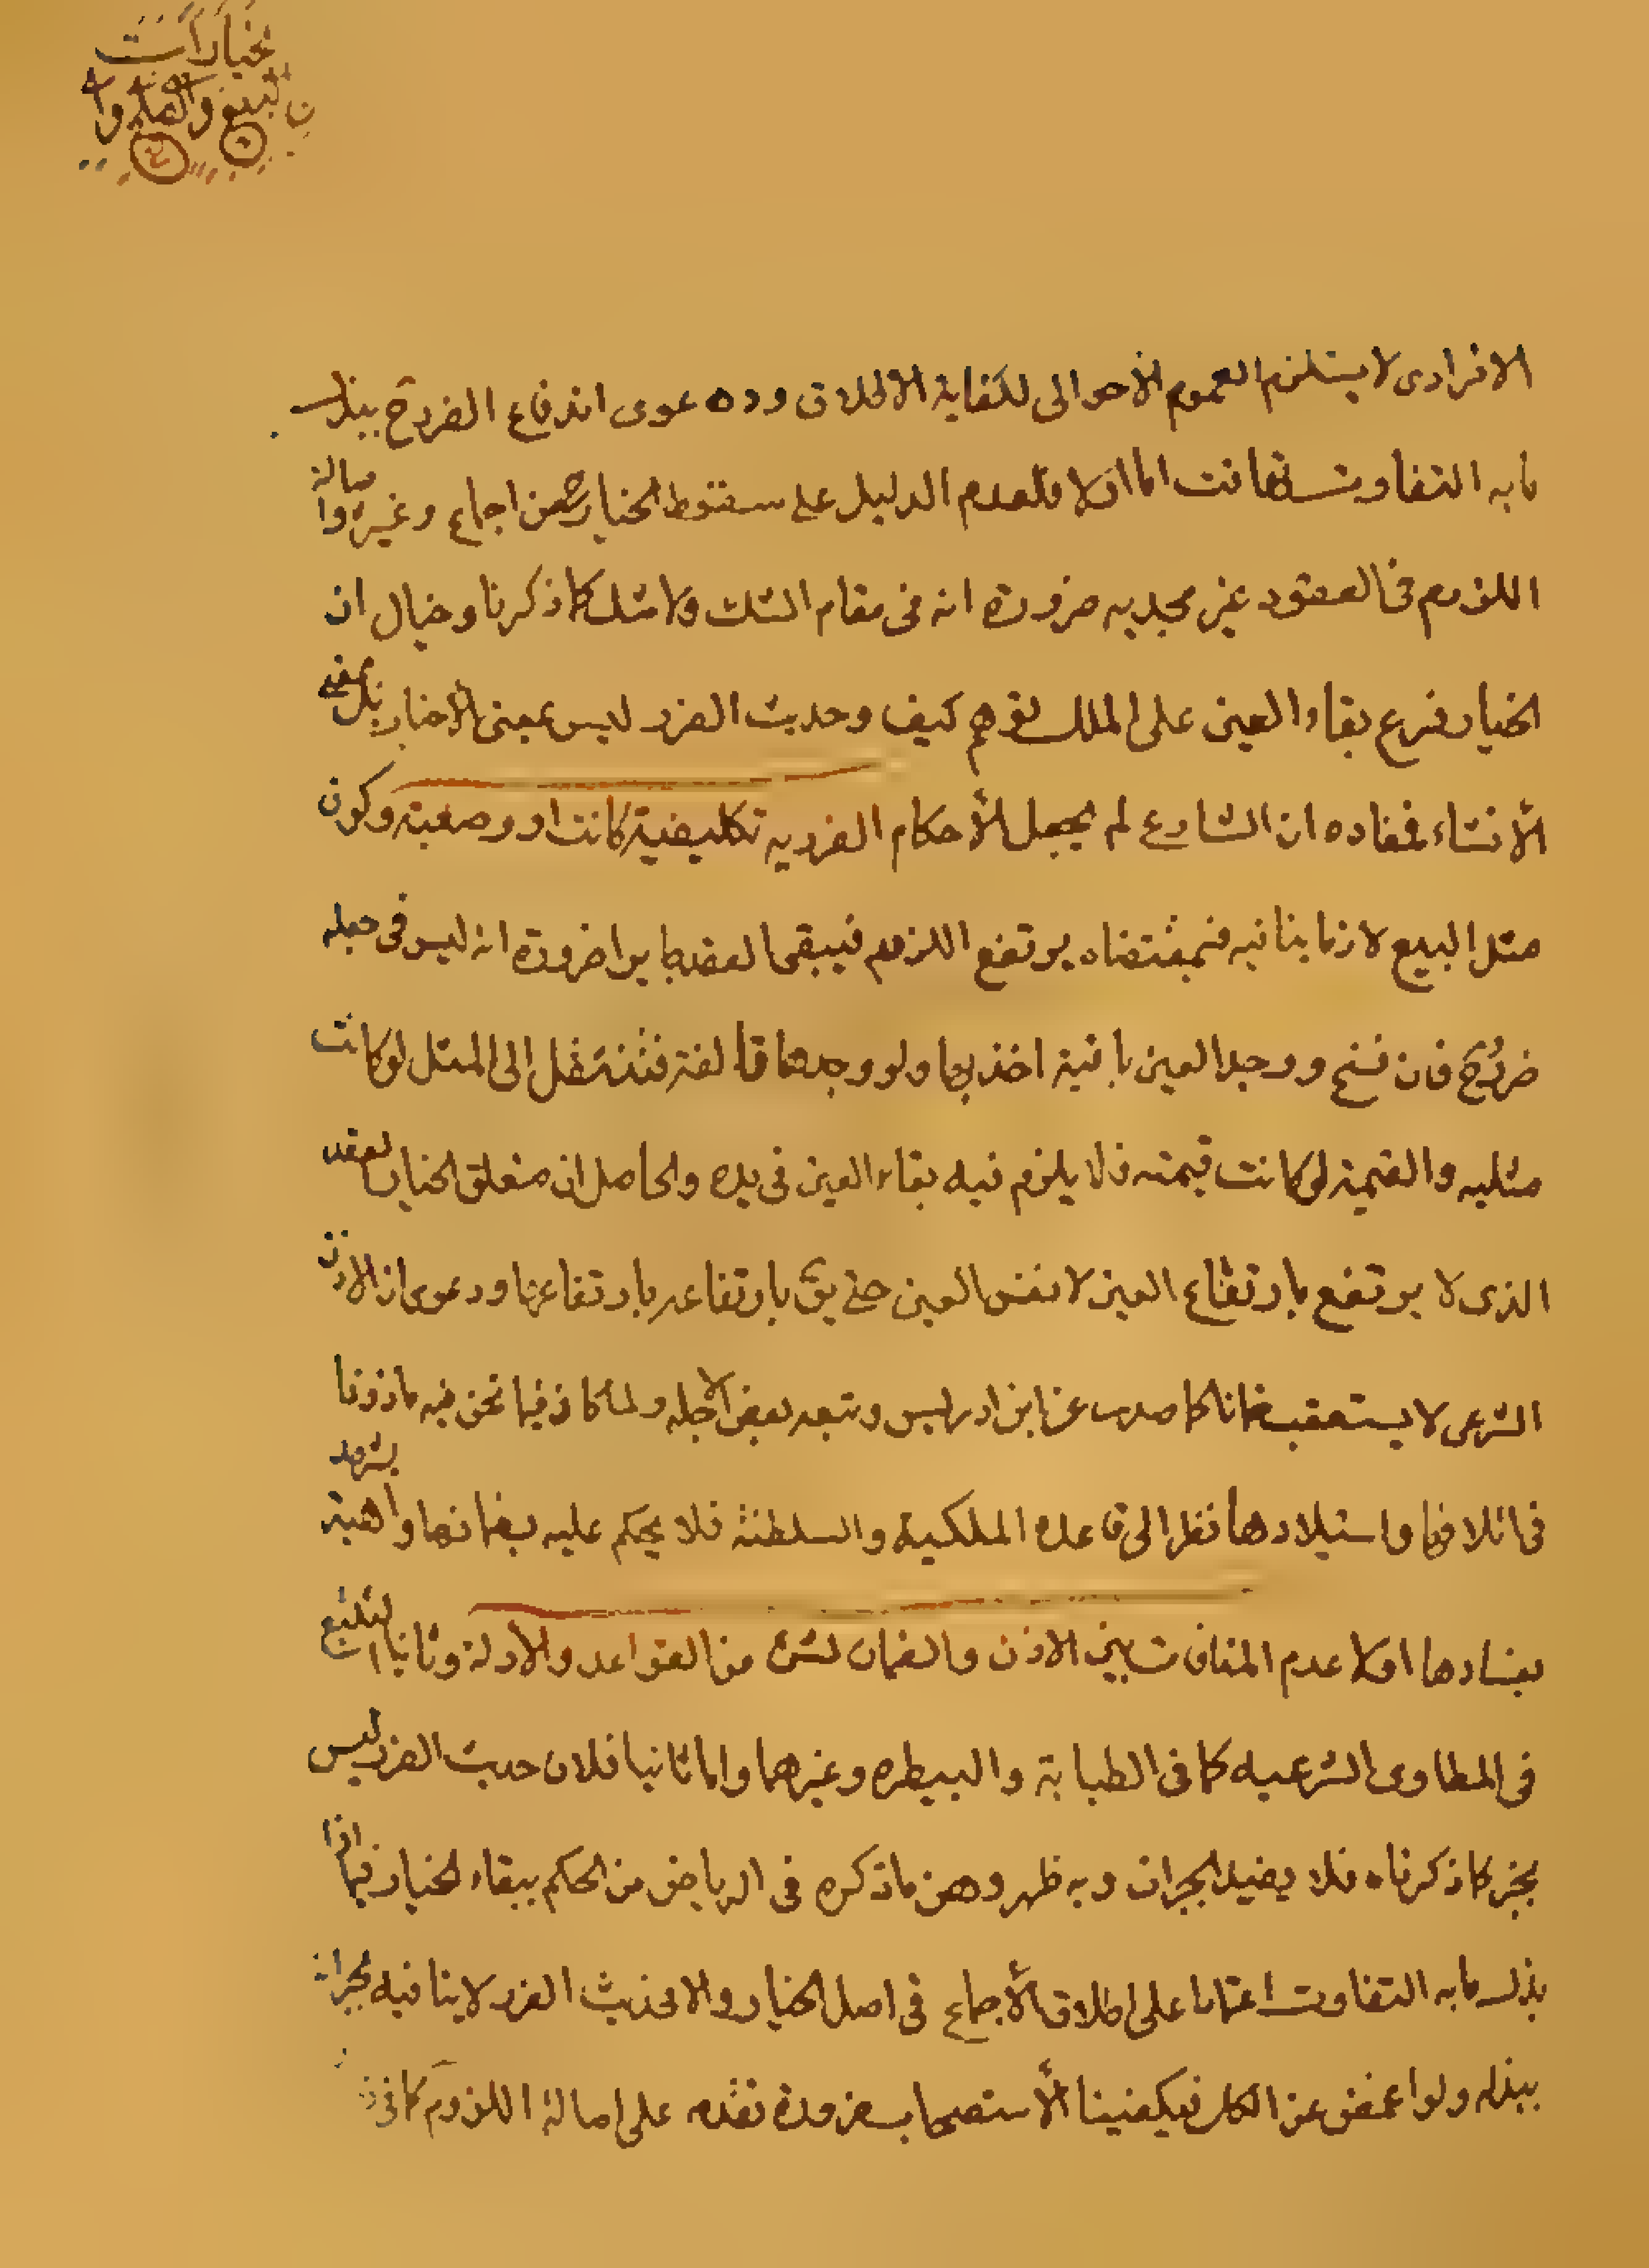 الافرادى لا يستلزم العموم الأحوالى لكفاية الاطلاق و دعوى اندفاع الضرر ح ببذل
مابه التفاوت سانت اما اولا فلعدم الدليل على سقوط الخيار ح من اجماع وغيره واصالة
اللزوم فى العقود غير مجديه ضرورة انه فى مقام الشك ولا شك كما ذكرنا وخيال ان
الخيار فرع بقاء العين على الملك توهم كيف وحديث الضرر ليس بمعنى الأخبار بل بمعنى
الأنشاء فمفاده ان الشارع لم يجعل الأحكام الضرريه تكليفية كانت او وضعية وكون
مثل البيع لازما ينافيه فبمقتضاه يرتفع اللزوم فيبقى العقد جايرا ضرورة انه ليس فى جعله
ضرر ح فان فسخ ووجد العين باقية اخذ بها ولو وجدها تالفة فتنتقل الى المثل لو كانت
مثليه والقيمة لو كانت قيمته فلا يلزم فيه بقاء العين فى يده والحاصل ان متعلق الخيار العقد
الذى لا يرتفع بارتفاع العين لا نفس العين حتى يق بارتفاعه بارتفاعها ودعوى ان الاذن
الشرعى لا يستعقب ضمانا كما صدر عن ابن ادريس وتبعه بعض الأجله ولما كان فيما نحن فيه ماذونا
فى اتلافها واستيلادها نظرا الى قاعده الملكية والسلطنة فلا يحكم عليه بضمانها واهية يشهد
بفسادها اولا عدم المنافات بين الاذن والضمان لشئ من القواعد والأدلة وثانيا التتبع
فى المطاوى الشرعيه كما فى الطبابة والبيطره وغيرهما واما ثانيا فلان حديث الضرر ليس
بخبر كما ذكرناه فلا يفيد الجبران وبه ظهر وهن ماذكره فى الرياض من الحكم ببقاء الخيار فيما اذا
بذل مابه التفاوت اعتمادا على اطلاق الأجماع فى اصل الخيار والا فحديث الضرر لا ينافيه لجبرانه
ببذله ولو اغمض عن الكل فيكفينا الأستصحاب ضرورة تقدمه على اصالة اللزوم كما فى